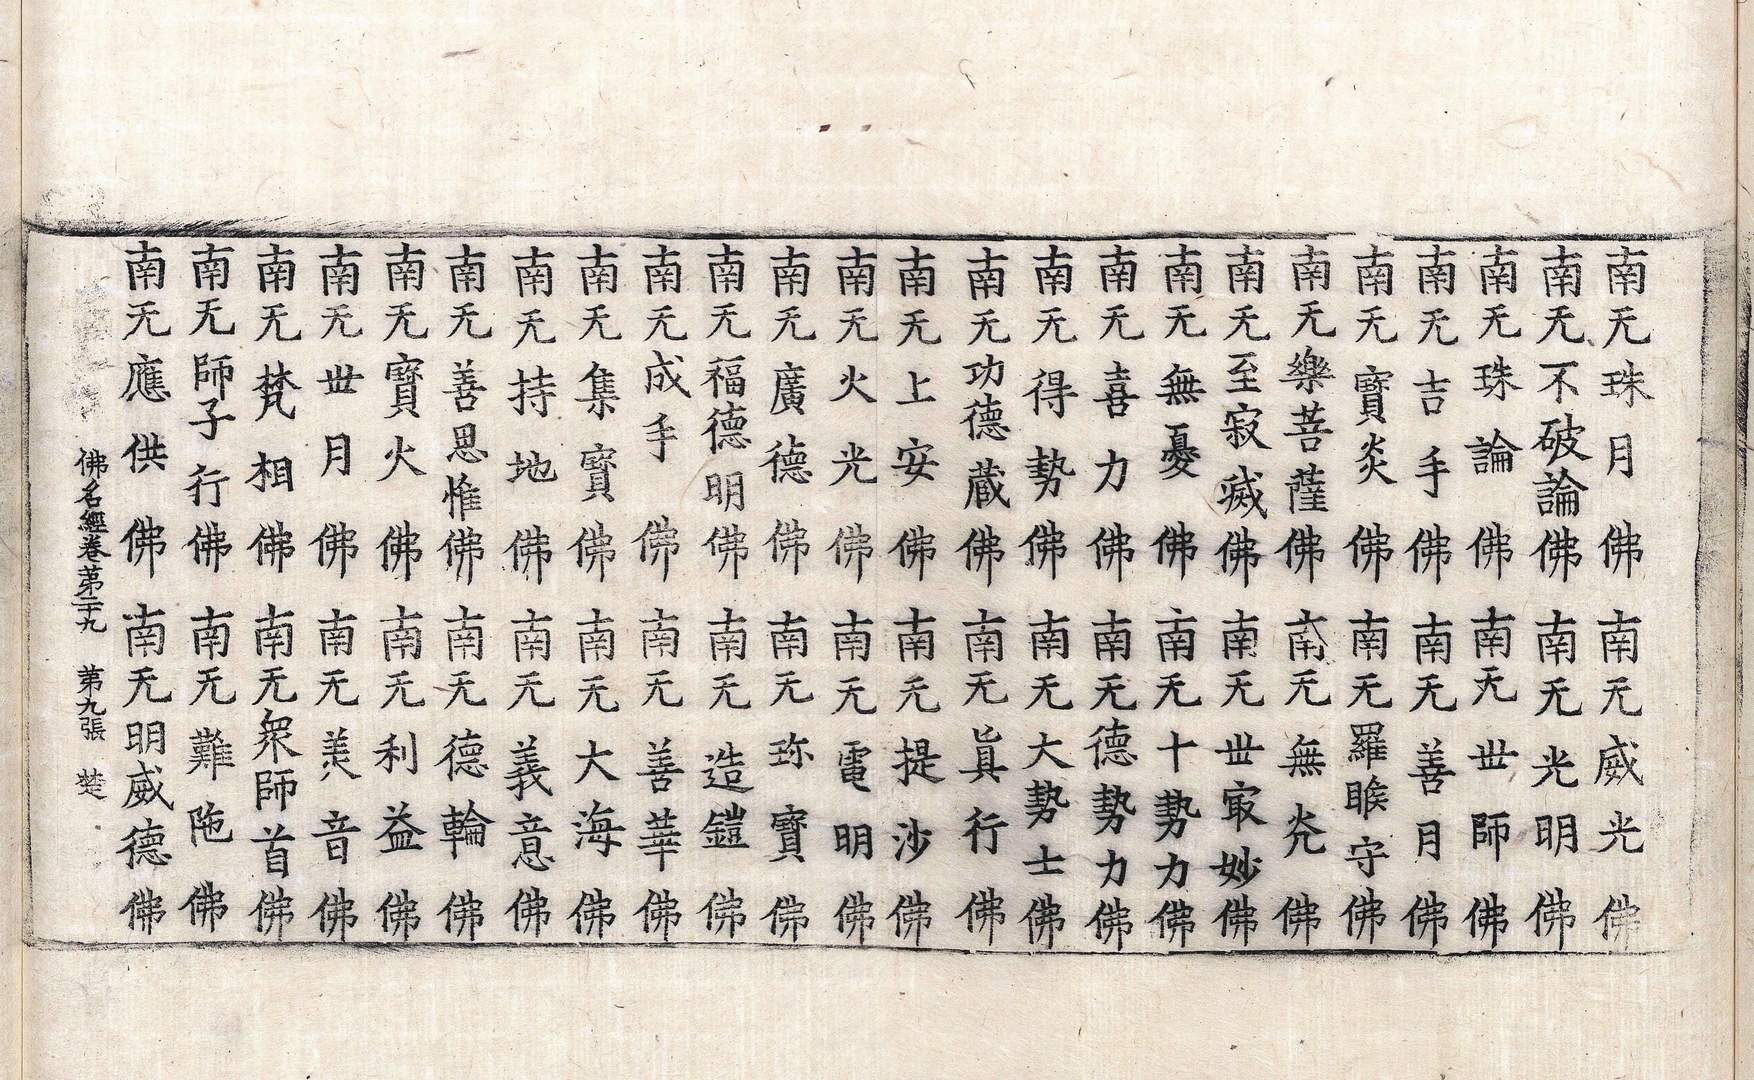 南无珠月佛南无威光佛
南无不破論佛南无光明佛
南无珠論佛南无世師佛
南无吉手佛南无善月佛
南无寶炎佛南无羅睺守佛
南无樂菩薩佛南无無𠒋佛
南无至寂滅佛南无世㝡妙佛
南无無憂佛南无十勢力佛
南无喜力佛南无德勢力佛
南无得勢佛南无大勢士佛
南无功德藏佛南无眞行佛
南无上安佛南无提沙佛
南无火光佛南无電明佛
南无廣德佛南无珎寶佛
南无福德明佛南无造鎧佛
南无成手佛南无善華佛
南无集寶佛南无大海佛
南无持地佛南无義意佛
南无善思惟佛南无德輪佛
南无寶火佛南无利益佛
南无世月佛南无美音佛
南无梵相佛南无衆師首佛
南无師子行佛南无難陁佛
南无應供佛南无明威德佛
佛名經卷第二十九 第九張 楚